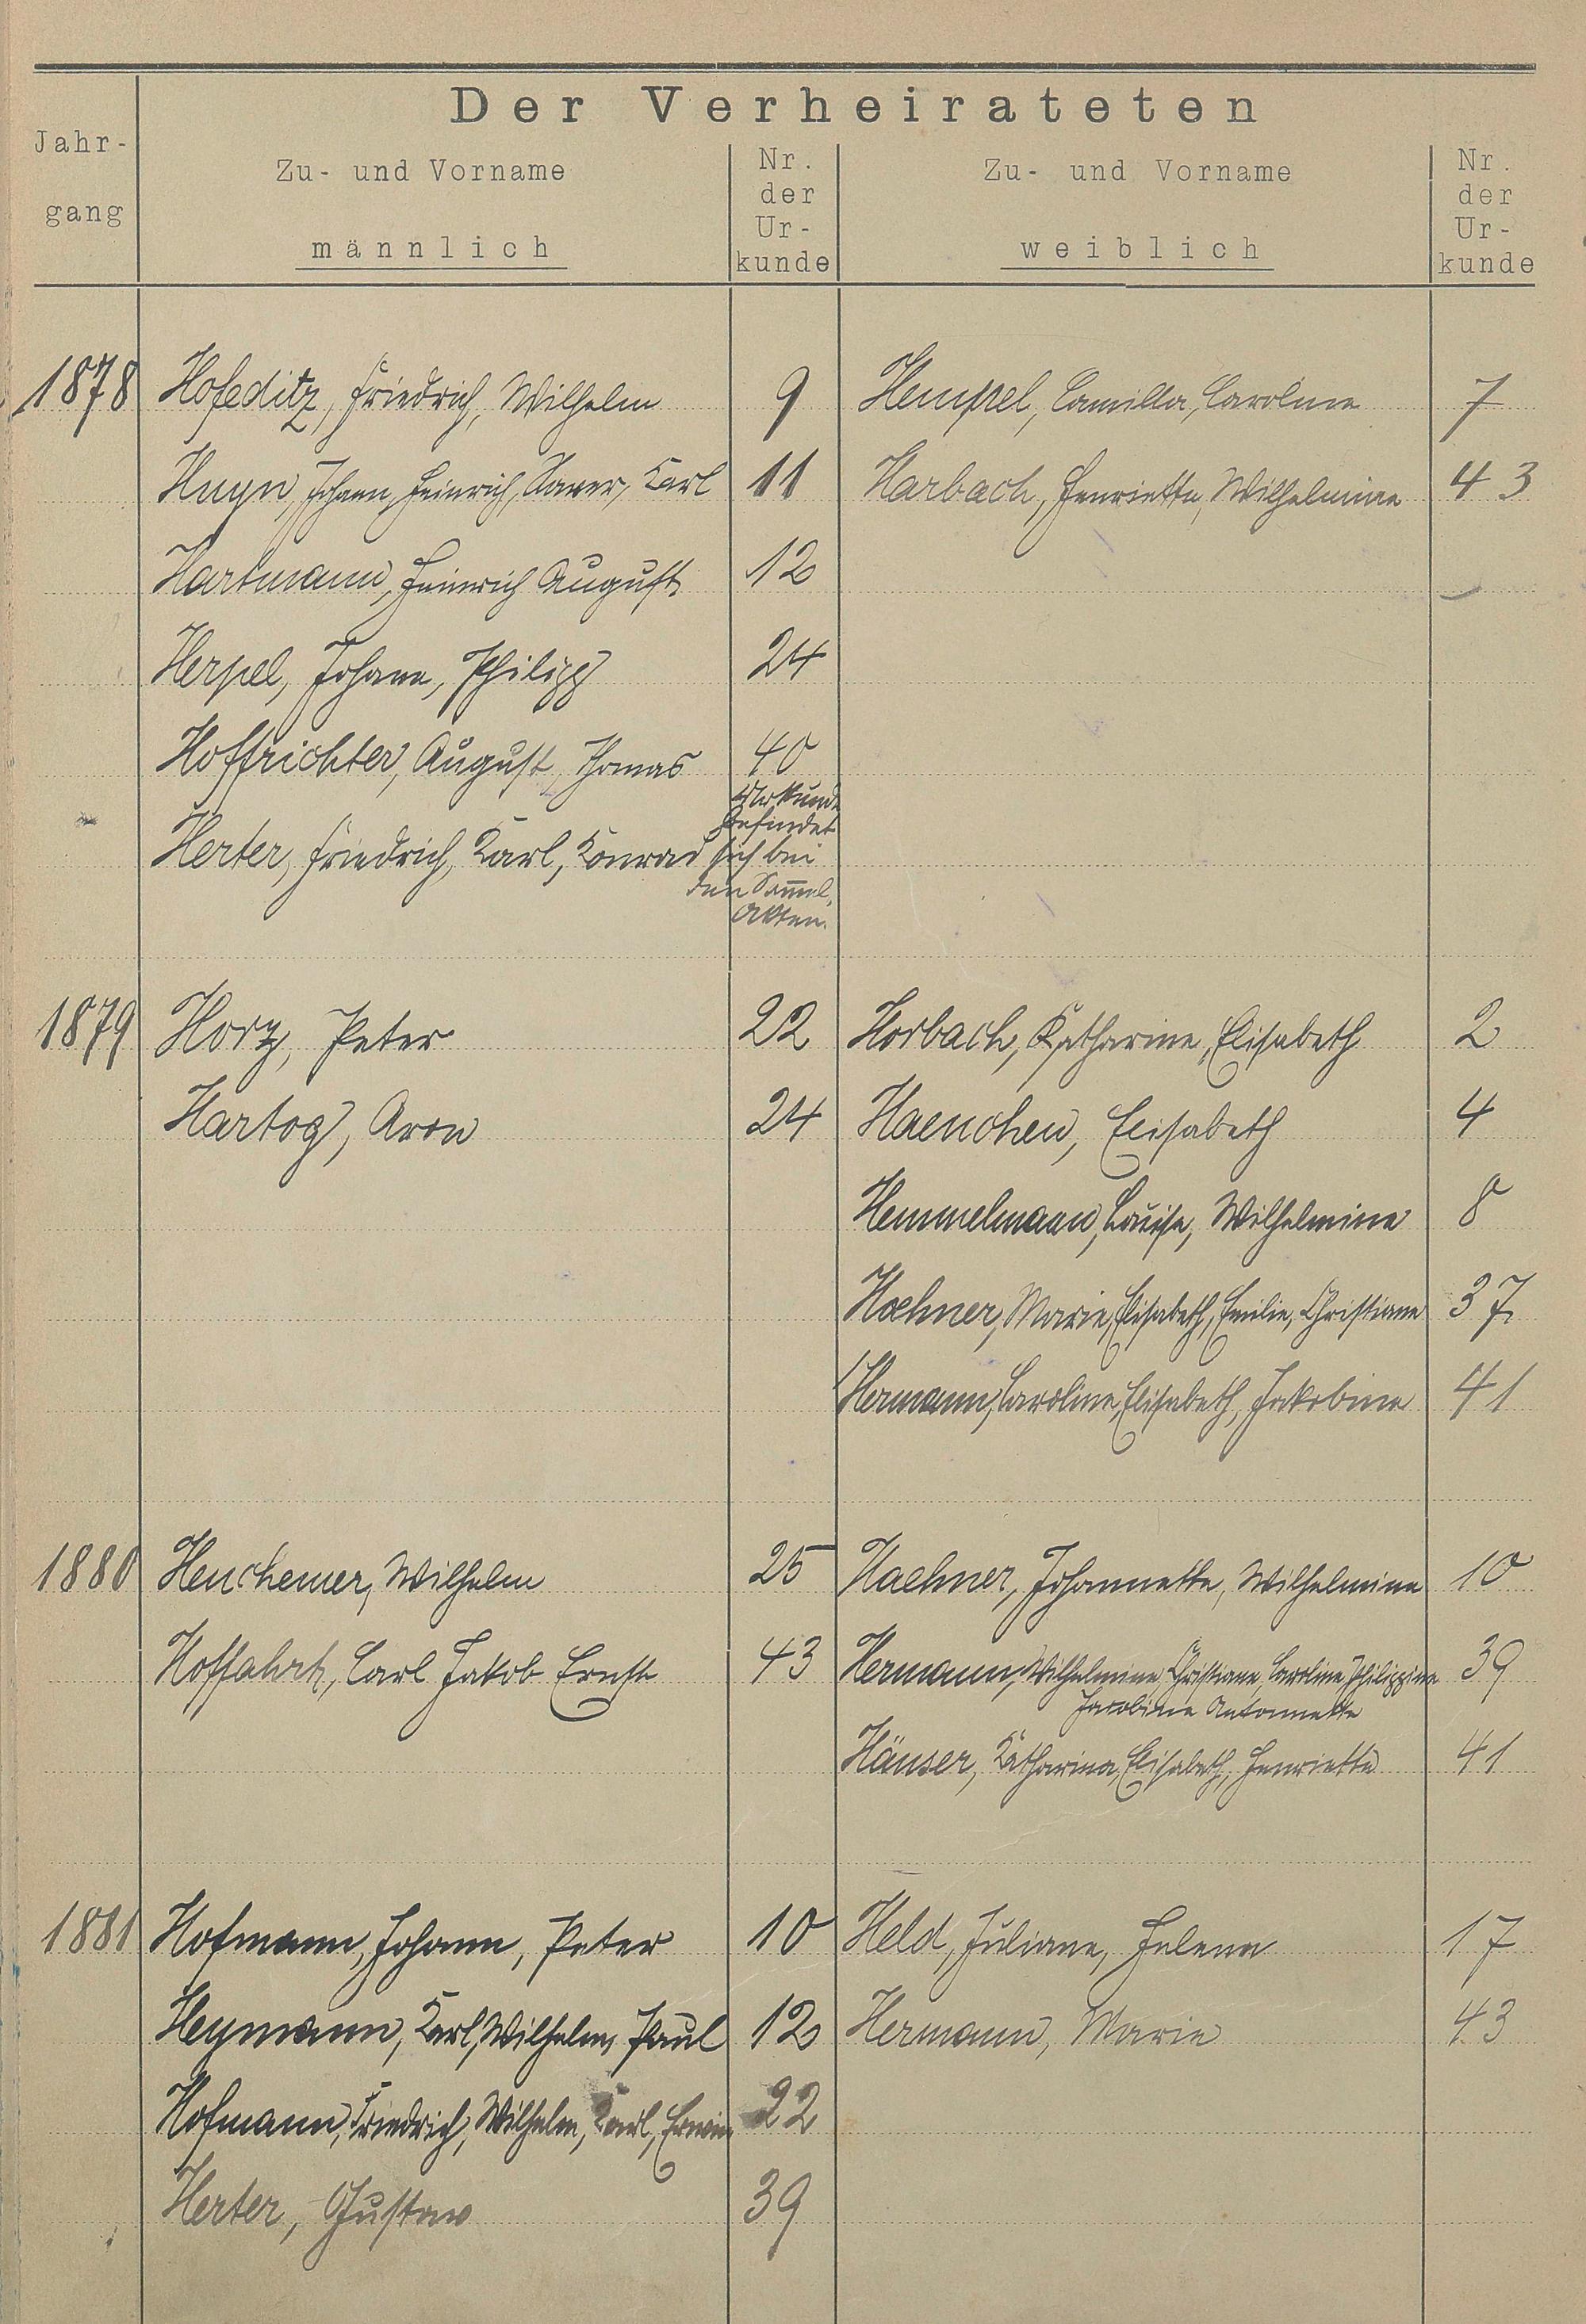 Der Verheirateten
Jahr-
gang
Zu- und Vorname
männlich
Nr.
der
Ur-
kunde
Zu- und Vorname
weiblich
Nr.
der
Ur-
kunde
1878 Hofeditz, Friedrich, Wilhelm 9 Hempel, Camilla, Caroline 7
Huyn, Johann, Heinrich, Xaver, Carl 11 Harbach, Henriette, Wilhelmine 43
Hartmann, Heinrich August 12
Herpel, Johann, Philipp 24
Hoffrichter, August, Thomas 40
Herter, Friedrich, Karl, Konrad Urkunde
befindet
sich bei
den Sam̅el,
Akten.
1879 Horz, Peter 22 Horbach, Katharine, Elisabeth 2
Hartog, Aron 24 Haenchen, Elisabeth 4
Hemmelmann, Louise, Wilhelmine 8
Hoehner, Marie, Elisabeth, Emilie, Christiane 37
Hermann, Caroline, Elisabeth, Jakobine 41
1880 Henchemer, Wilhelm 25 Haehner, Johannette, Wilhelmine 10
Hoffahrt, Carl Jakob Ernst 43 Hermann, Wilhelmine Christiane Caroline Philippine 39
Jacobine Antonnette
Häuser, Katharina, Elisabeth, Henriette 41
1881 Hofmann, Johann, Peter 10 Held, Juliane, Helena 17
Heymann, Karl, Wilhelm, Paul 12 Hermann, Marie 43
Hofmann, Friedrich, Wilhelm, Karl, Erwin 22
Herter, Gustav 39